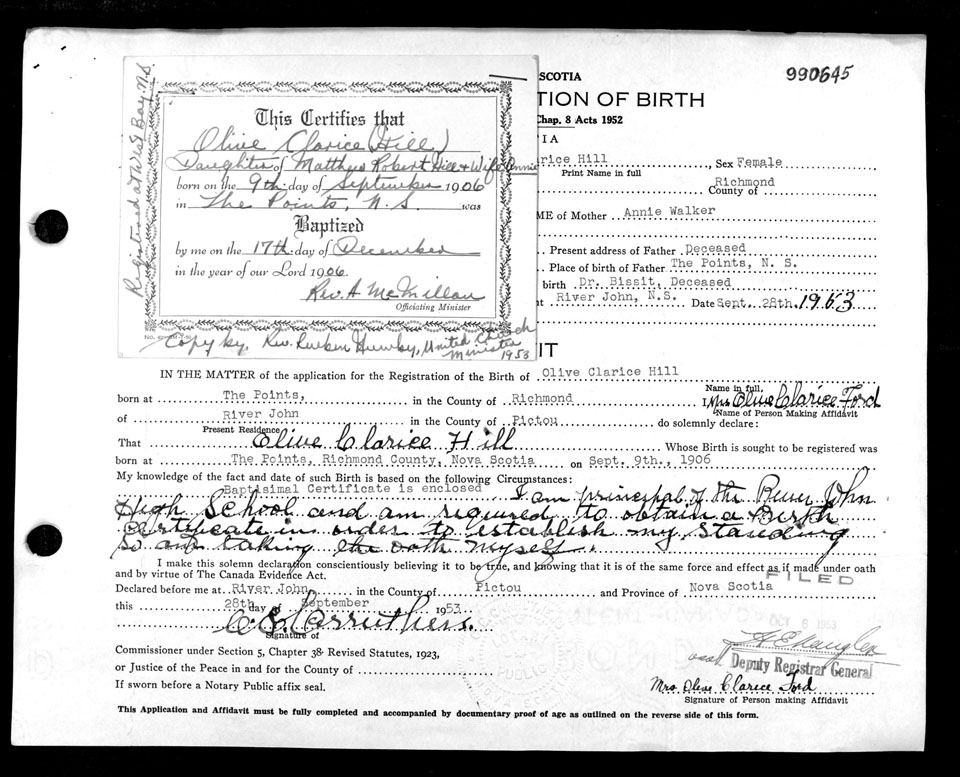 Registered at West Bay N.S.
This Certifies that
Olive Clarice (Hill)
Daughter of Matthew Robert Hill & Wife Annie
born on the 9th day of September 1906
in The Points, N.S. was
Baptized
by me on the 17th day of December
in the year of our Lord 1906.
Rev. A McMillan
Officiating Minister
Copy by. Rev. Humby, United Church
Minister
1953
SCOTIA
990645
TION OF BIRTH
Chap. 8 Acts 1952
IA
rice Hill , Sex Female
Print Name in full
Richmond
County of
ME of Mother Annie Walker
Present address of Father Deceased
Place of birth of Father The Points, N. S.
birth Dr. Bissit, Deceased
at River John, N.S. Date Sept. 28th. 1953
IT
IN THE MATTER of the application for the Registration of the Birth of Olive Clarice Hill
Name in full,
born at The Points, in the County of Richmond I, Mrs Olive Clarice Ford
Name of Person Making Affidavit
of River John in the County of Pictou do solemnly declare:
Present Residence
That Olive Clarice Hill Whose Birth is sought to be registered was
born at The Points, Richmond County, Nova Scotia on Sept. 9th., 1906
My knowledge of the fact and date of such Birth is based on the following Circumstances:
Baptisimal Certificate is enclosed I am principal of the River John
High School and am required to obtain a Birth
certificate in order to establish my standing
so am taking the oath myself.
I make this solemn declaration conscientiously believing it to be true, and knowing that it is of the same force and effect as if made under oath
and by virtue of The Canada Evidence Act.
FILED
Declared before me at River John in the County of Pictou and Province of Nova Scotia
this 28th day of September 1953
OCT 6 1953
C. E. Carruthers.
Signature of
Commissioner under Section 5, Chapter 38 Revised Statutes, 1923,
or Justice of the Peace in and for the County of
If sworn before a Notary Public affix seal.
Deputy Registrar General
Mrs. Olive Clarice Ford
Signature of Person making Affidavit
This Application and Affidavit must be fully completed and accompanied by documentary proof of age as outlined on the reverse side of this form.